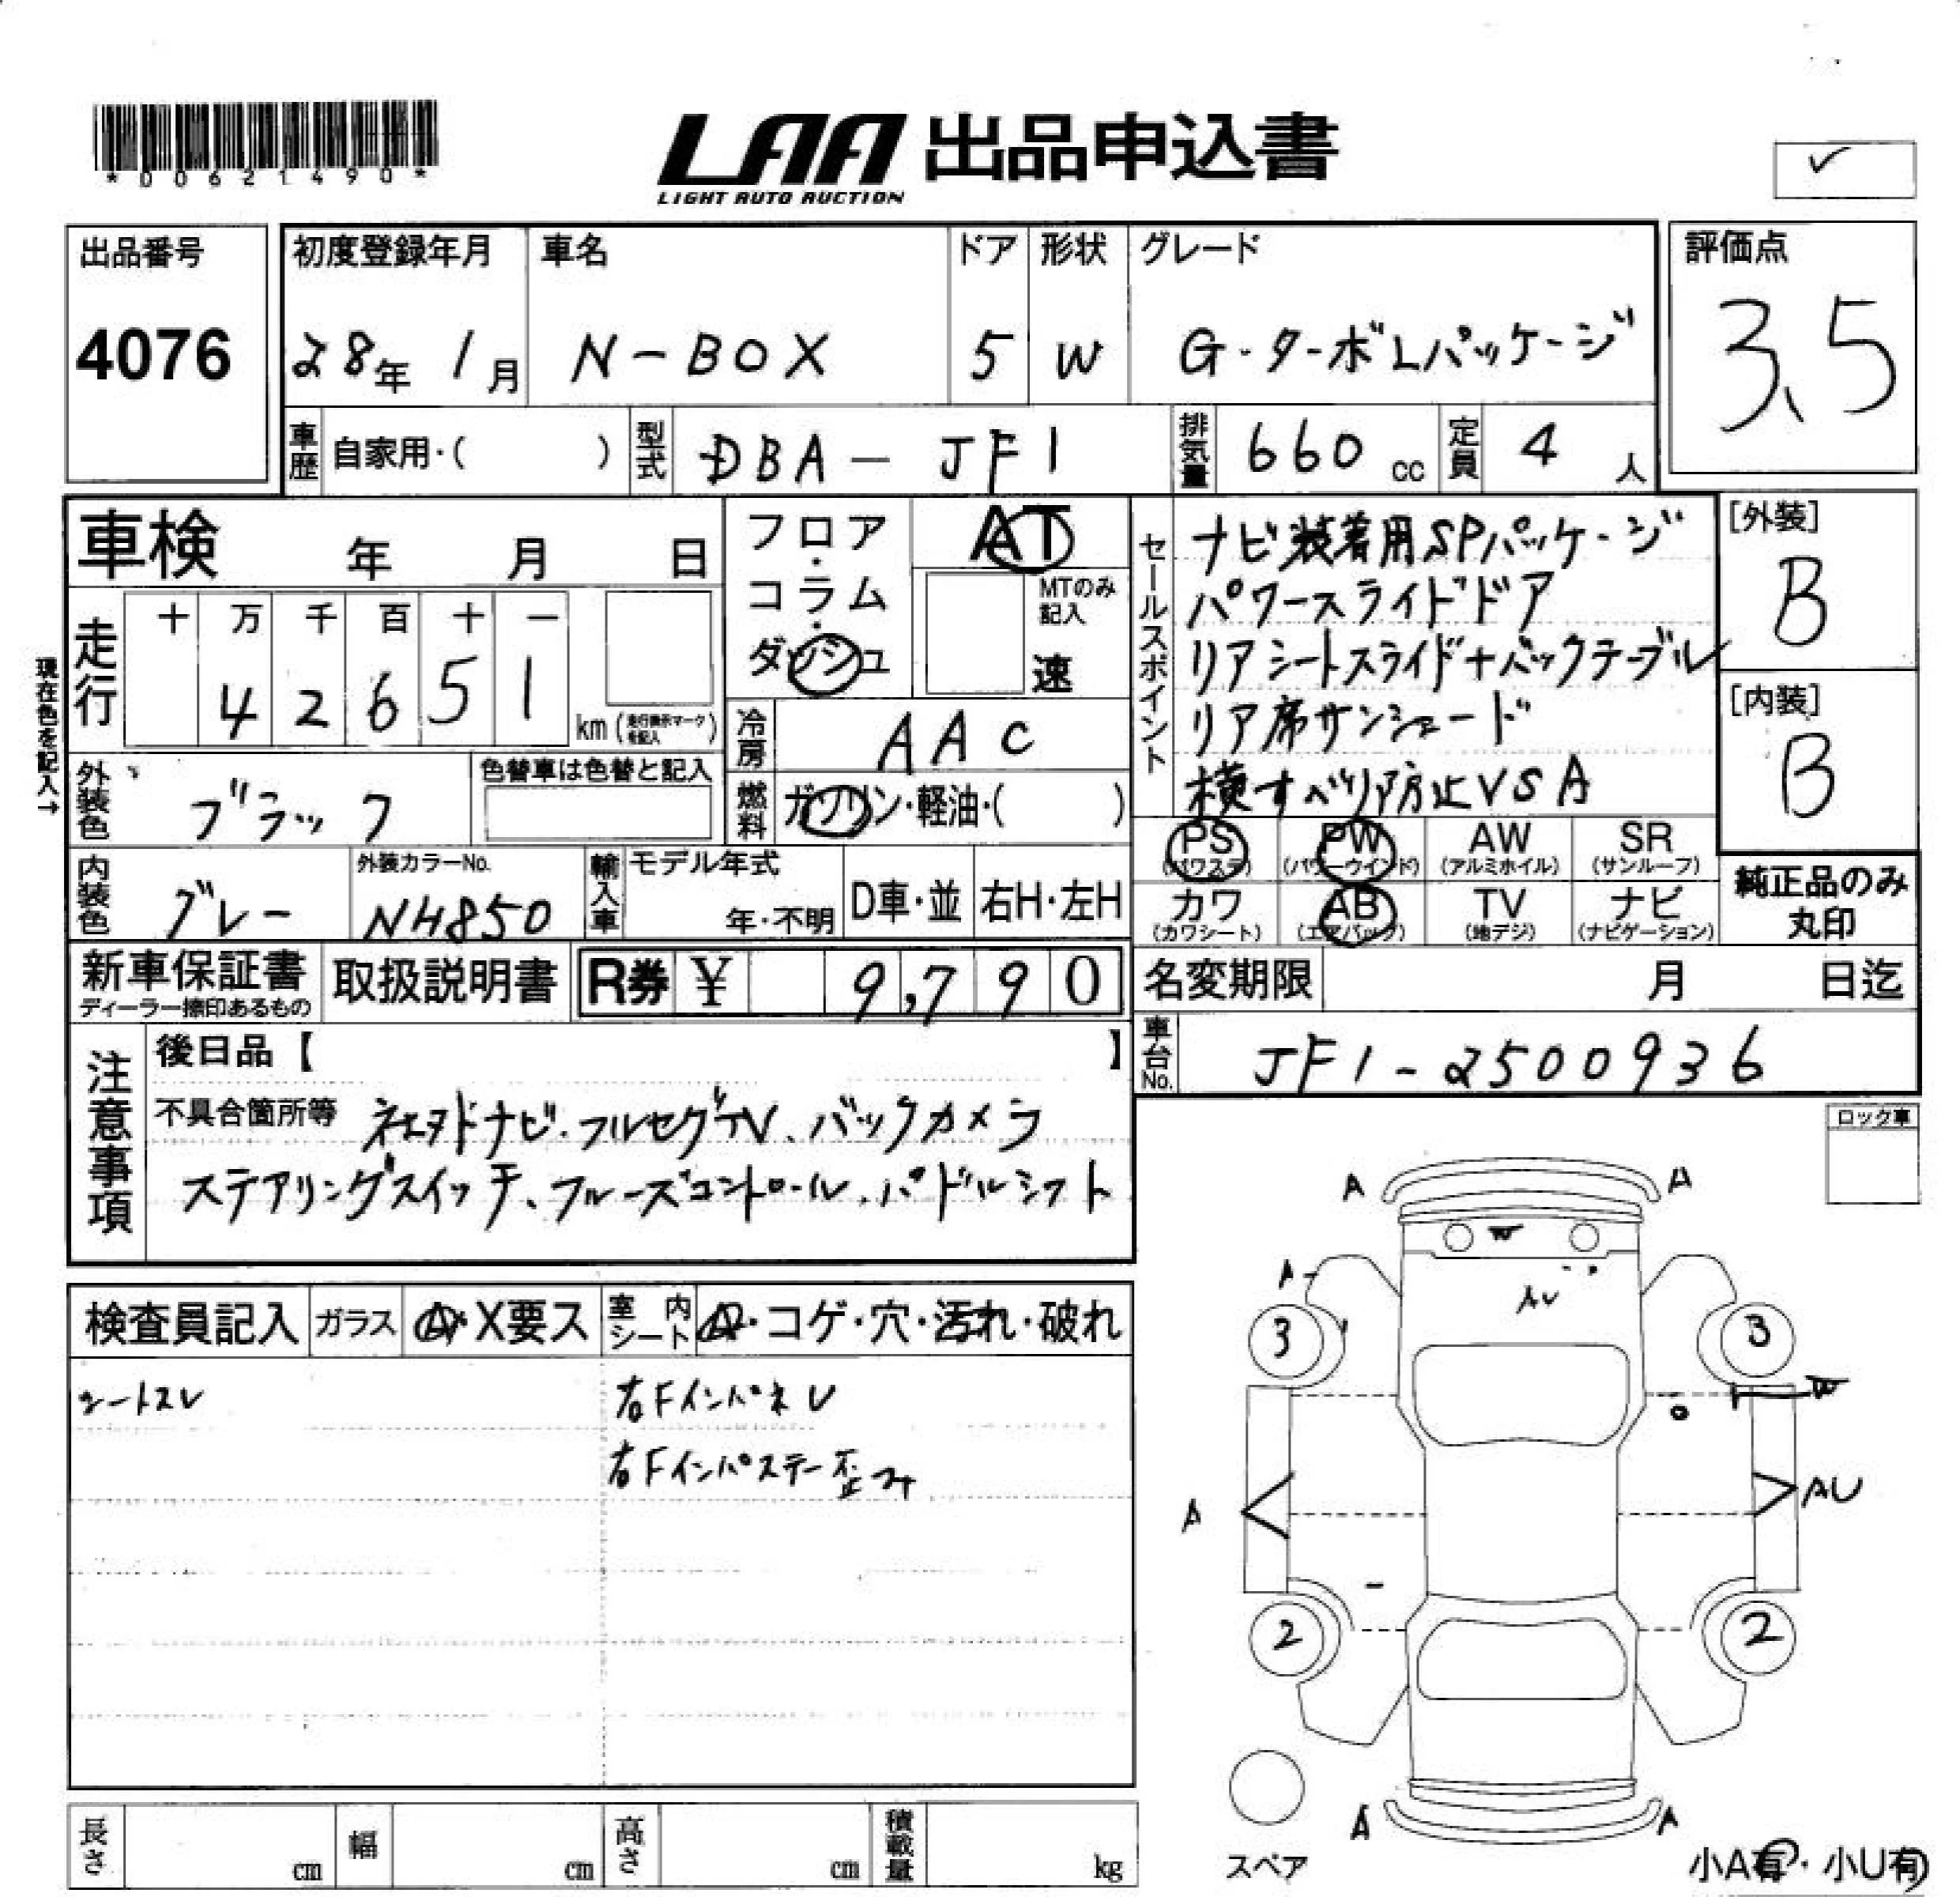 *00621490*
LAA 出品申込書
LIGHT AUTO AUCTION
✓
出品番号
4076
初度登録年月
28年 1月
車名
N-BOX
ドア
5
形状
W
グレード
G・ターボLパッケージ
評価点
3.5
車歴
自家用・( )
型式
DBA-JF1
排気量
660 cc
定員
4 人
車検 年 月 日
フロア・コラム・ダッシュ
AT
MTのみ記入
速
走行
十 万 千 百 十 一
4 2 6 5 1
km(走行表示マークを記入)
現在色を記入→
冷房
AAC
外装色
ブラック
色替車は色替と記入
燃料
ガソリン・軽油・( )
内装色
グレー
外装カラーNo.
NH850
輸入車
モデル年式
年・不明
D車・並
右H・左H
セールスポイント
ナビ装着用SPパッケージ
パワースライドドア
リアシートスライド+バックテーブル
リア席サンシェード
横すべり防止VSA
[外装]
B
[内装]
B
PS (パワステ)
PW (パワーウインド)
AW (アルミホイル)
SR (サンルーフ)
カワ (カワシート)
AB (エアバック)
TV (地デジ)
ナビ (ナビゲーション)
純正品のみ
丸印
新車保証書
ディーラー捺印あるもの
取扱説明書
R券 ¥ 9,790
名変期限 月 日迄
車台No.
JF1-2500936
注意事項
後日品【 】
不具合箇所等 社外ナビ・フルセグTV、バックカメラ
ステアリングスイッチ、クルーズコントロール、パドルシフト
ロック車
検査員記入
ガラス
A・X要ス
室内シート
・コゲ・穴・汚れ・破れ
シートスレ
右FインパネU
右Fインパステー歪み
A A
W
A
AU
3 3
W
A
AU
2 2
A A
スペア
小A有・小U有
長さ cm
幅 cm
高さ cm
積載量 kg